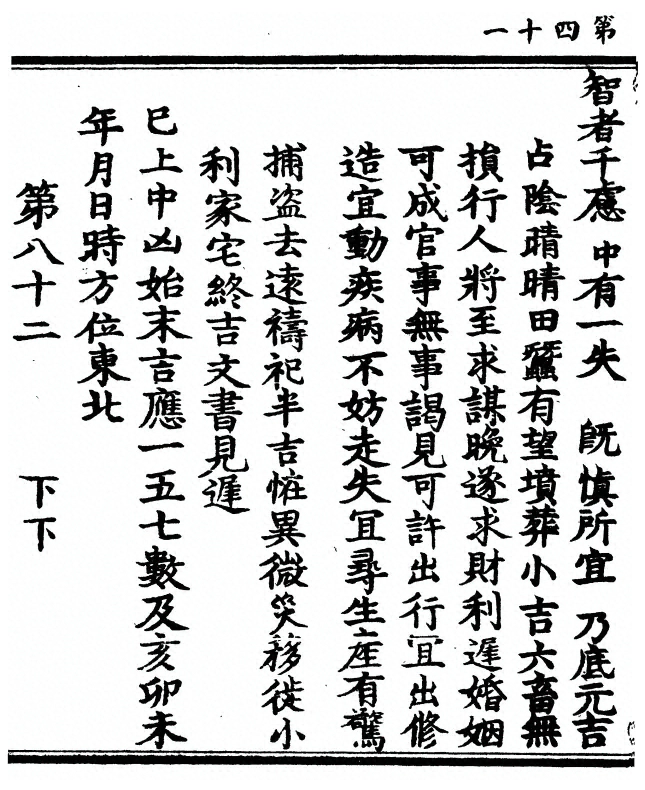 第四十一
智者千慮 中有一失 既慎所宜 乃底元吉
占陰晴晴田蠶有望墳葬小吉六畜無
損行人將至求謀晚遂求財利遲婚姻
可成官事無事謁見可許出行冝出修
造宜動疾病不妨走失冝尋生產有驚
捕盜去遠禱祀半吉恠異微災移徙小
利家宅終吉文書見遲
已上中凶始末吉應一五七數及亥卯未
年月日時方位東北
第八十二 下下